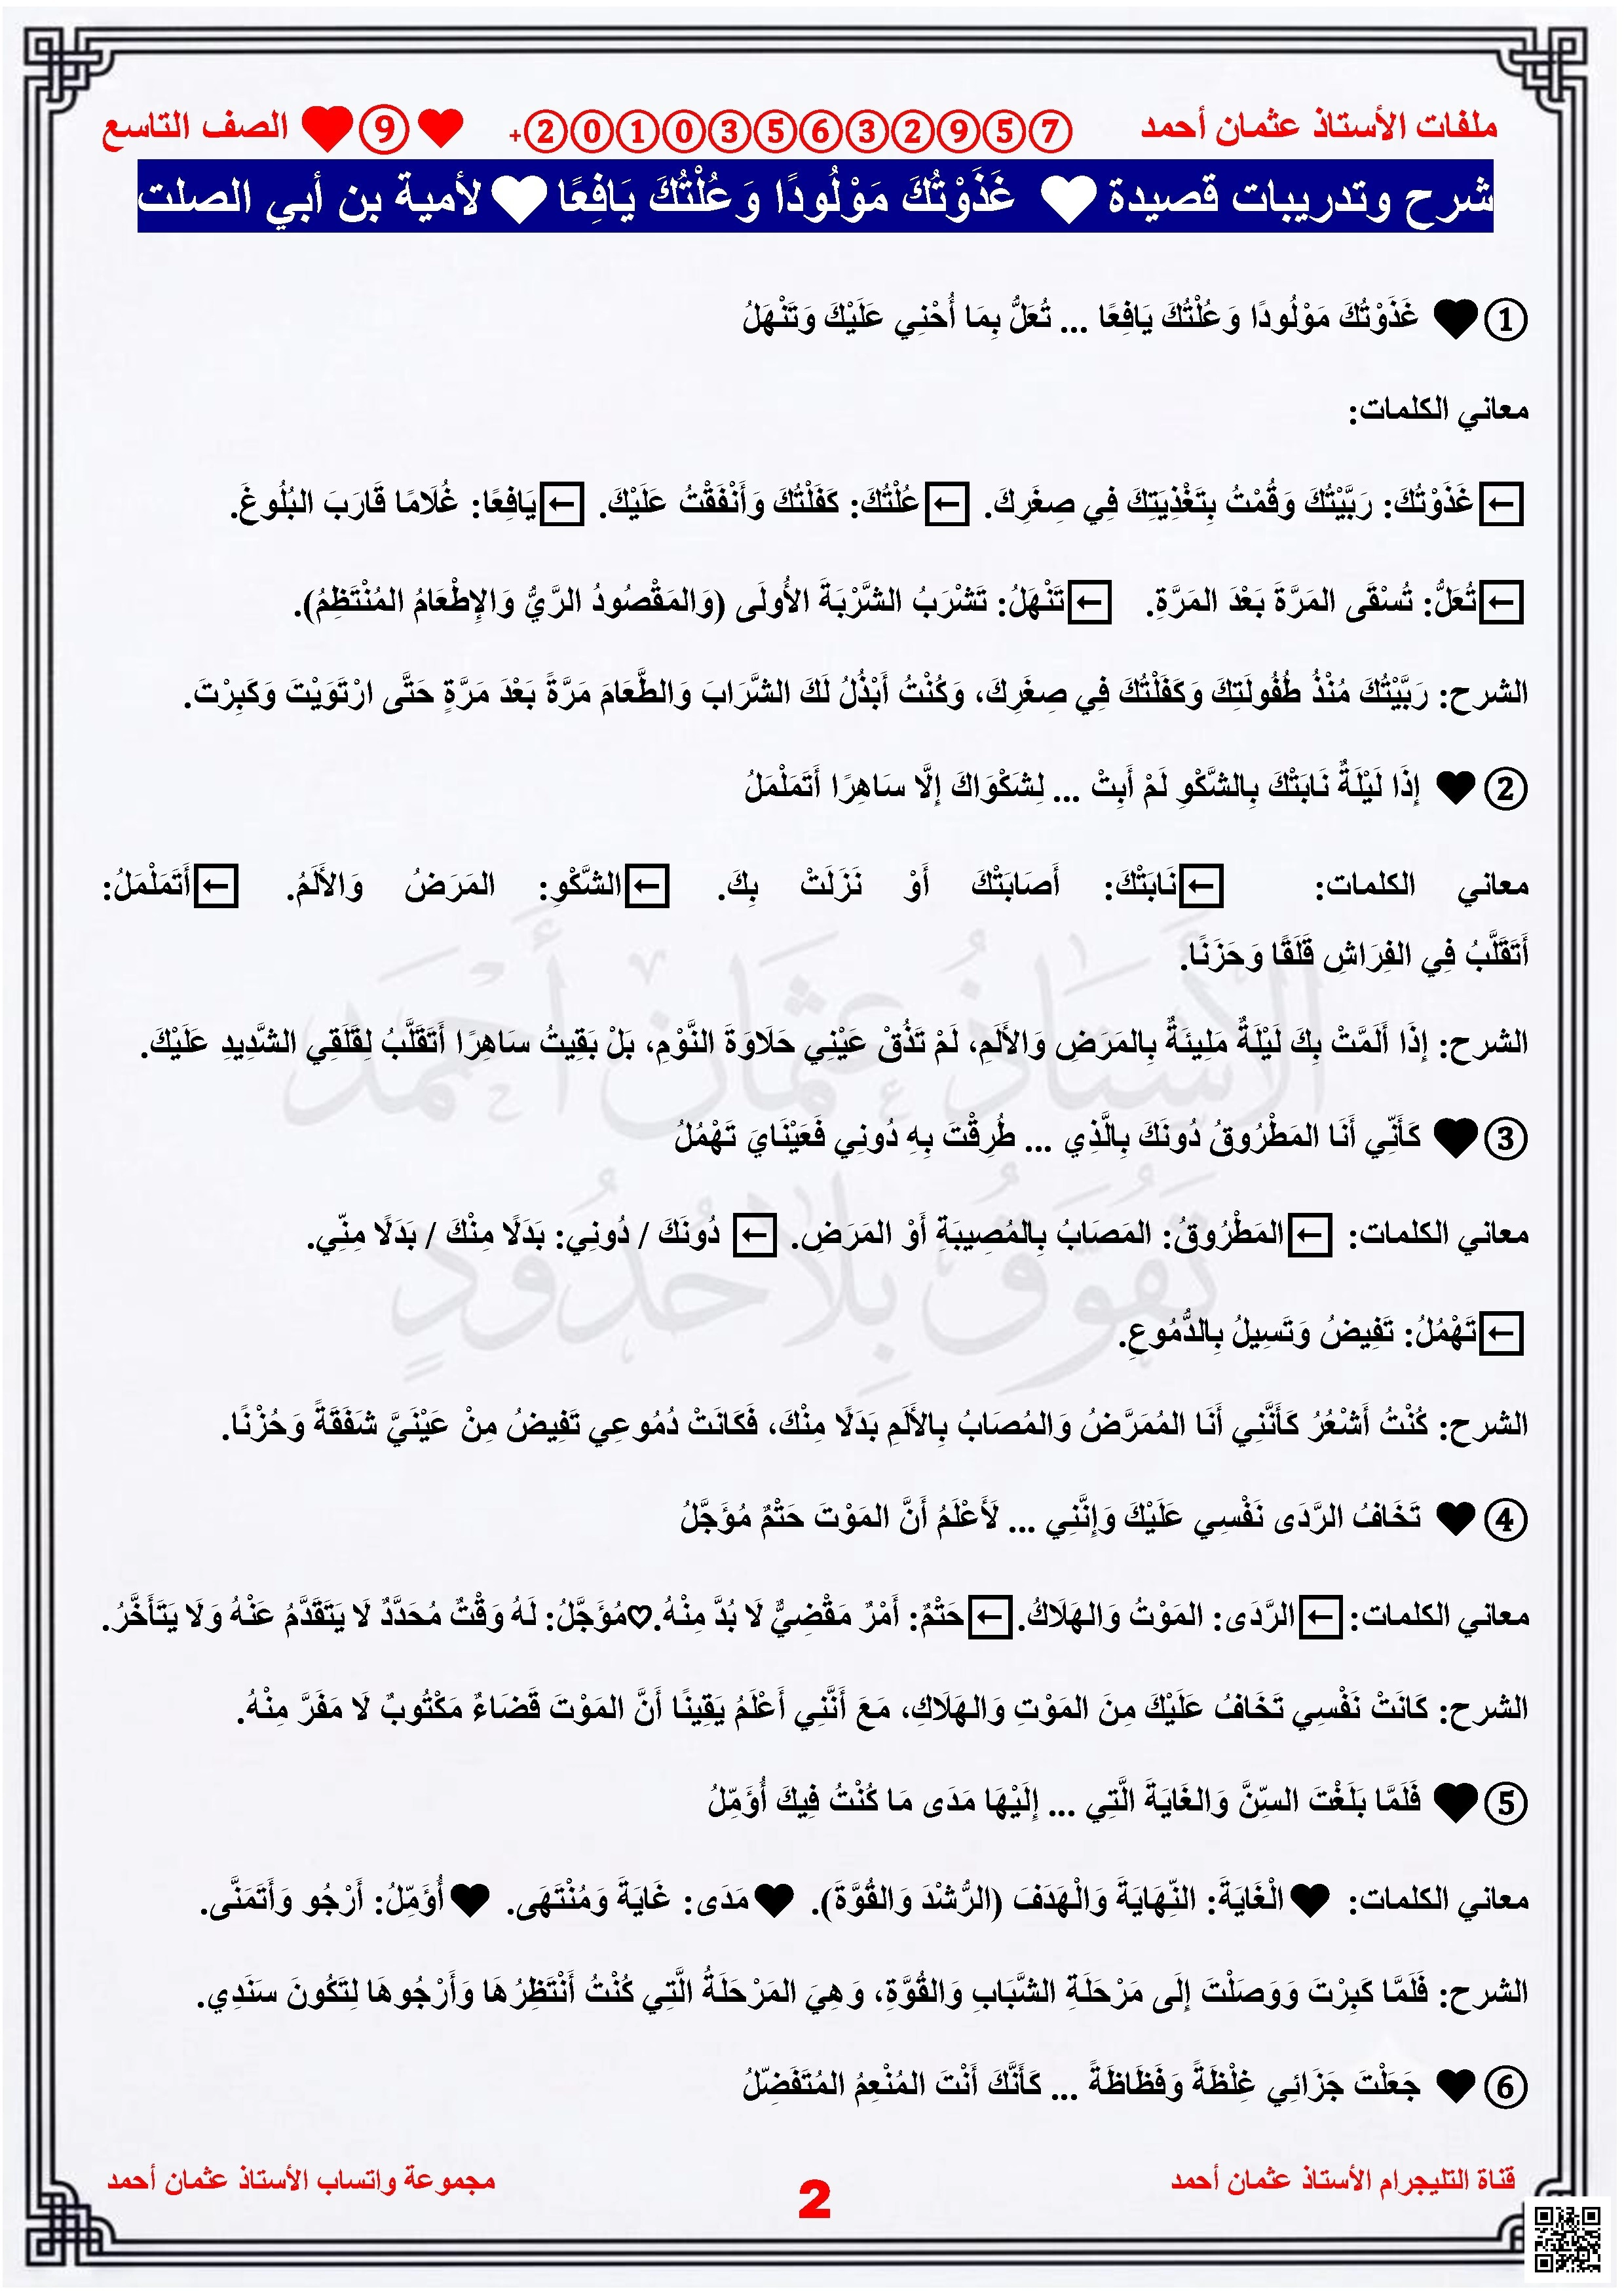 ملفات الأستاذ عثمان أحمد +②⓪①⓪③⑤⑥③②⑨⑤⑦ ♥⑨♥ الصف التاسع
شرح وتدريبات قصيدة ♥ غَذَوْتُكَ مَوْلُودًا وَعُلْتُكَ يَافِعًا ♥ لأمية بن أبي الصلت
①♥ غَذَوْتُكَ مَوْلُودًا وَعُلْتُكَ يَافِعًا ... تُعَلُّ بِمَا أُحْنِي عَلَيْكَ وَتَنْهَلُ
معاني الكلمات:
←غَذَوْتُكَ: رَبَّيْتُكَ وَقُمْتُ بِتَغْذِيَتِكَ فِي صِغَرِكَ. ←عُلْتُكَ: كَفَلْتُكَ وَأَنْفَقْتُ عَلَيْكَ. ←يَافِعًا: غُلَامًا قَارَبَ البُلُوغَ.
←تُعَلُّ: تُسْقَى المَرَّةَ بَعْدَ المَرَّةِ. ←تَنْهَلُ: تَشْرَبُ الشَّرْبَةَ الأُولَى (وَالمَقْصُودُ الرَّيُّ وَالإِطْعَامُ المُنْتَظِمُ).
الشرح: رَبَّيْتُكَ مُنْذُ طُفُولَتِكَ وَكَفَلْتُكَ فِي صِغَرِكَ، وَكُنْتُ أَبْذُلُ لَكَ الشَّرَابَ وَالطَّعَامَ مَرَّةً بَعْدَ مَرَّةٍ حَتَّى ارْتَوَيْتَ وَكَبِرْتَ.
②♥ إِذَا لَيْلَةٌ نَابَتْكَ بِالشَّكْوِ لَمْ أَبِتْ ... لِشَكْوَاكَ إِلَّا سَاهِرًا أَتَمَلْمَلُ
معاني الكلمات: ←نَابَتْكَ: أَصَابَتْكَ أَوْ نَزَلَتْ بِكَ. ←الشَّكْوِ: المَرَضُ وَالأَلَمُ. ←أَتَمَلْمَلُ:
أَتَقَلَّبُ فِي الفِرَاشِ قَلَقًا وَحَزَنًا.
الشرح: إِذَا أَلَمَّتْ بِكَ لَيْلَةٌ مَلِيئَةٌ بِالمَرَضِ وَالأَلَمِ، لَمْ تَذُقْ عَيْنِي حَلَاوَةَ النَّوْمِ، بَلْ بَقِيتُ سَاهِرًا أَتَقَلَّبُ لِقَلَقِي الشَّدِيدِ عَلَيْكَ.
الأستاذ عثمان أحمد
③♥ كَأَنِّي أَنَا المَطْرُوقُ دُونَكَ بِالَّذِي ... طُرِقْتَ بِهِ دُونِي فَعَيْنَايَ تَهْمُلُ
معاني الكلمات: ←المَطْرُوقُ: المَصَابُ بِالمُصِيبَةِ أَوْ المَرَضِ. ← دُونَكَ / دُونِي: بَدَلًا مِنْكَ / بَدَلًا مِنِّي.
تَفَوُّق بِلَا حُدُودٍ
←تَهْمُلُ: تَفِيضُ وَتَسِيلُ بِالدُّمُوعِ.
الشرح: كُنْتُ أَشْعُرُ كَأَنَّنِي أَنَا المُمَرَّضُ وَالمُصَابُ بِالأَلَمِ بَدَلًا مِنْكَ، فَكَانَتْ دُمُوعِي تَفِيضُ مِنْ عَيْنَيَّ شَفَقَةً وَحُزْنًا.
④♥ تَخَافُ الرَّدَى نَفْسِي عَلَيْكَ وَإِنَّنِي ... لَأَعْلَمُ أَنَّ المَوْتَ حَتْمٌ مُؤَجَّلُ
معاني الكلمات: ←الرَّدَى: المَوْتُ وَالهَلَاكُ. ←حَتْمٌ: أَمْرٌ مَقْضِيٌّ لَا بُدَّ مِنْهُ.♡مُؤَجَّلُ: لَهُ وَقْتٌ مُحَدَّدٌ لَا يَتَقَدَّمُ عَنْهُ وَلَا يَتَأَخَّرُ.
الشرح: كَانَتْ نَفْسِي تَخَافُ عَلَيْكَ مِنَ المَوْتِ وَالهَلَاكِ، مَعَ أَنَّنِي أَعْلَمُ يَقِينًا أَنَّ المَوْتَ قَضَاءٌ مَكْتُوبٌ لَا مَفَرَّ مِنْهُ.
⑤♥ فَلَمَّا بَلَغْتَ السِّنَّ وَالغَايَةَ الَّتِي ... إِلَيْهَا مَدَى مَا كُنْتُ فِيكَ أُؤَمِّلُ
معاني الكلمات: ♥الْغَايَةَ: النِّهَايَةَ وَالْهَدَفَ (الرُّشْدَ وَالقُوَّةَ). ♥مَدَى: غَايَةَ وَمُنْتَهَى. ♥أُؤَمِّلُ: أَرْجُو وَأَتَمَنَّى.
الشرح: فَلَمَّا كَبِرْتَ وَوَصَلْتَ إِلَى مَرْحَلَةِ الشَّبَابِ وَالقُوَّةِ، وَهِيَ المَرْحَلَةُ الَّتِي كُنْتُ أَنْتَظِرُهَا وَأَرْجُوهَا لِتَكُونَ سَنَدِي.
⑥♥ جَعَلْتَ جَزَائِي غِلْظَةً وَفَظَاظَةً ... كَأَنَّكَ أَنْتَ المُنْعِمُ المُتَفَضِّلُ
قناة التليجرام الأستاذ عثمان أحمد 2 مجموعة واتساب الأستاذ عثمان أحمد